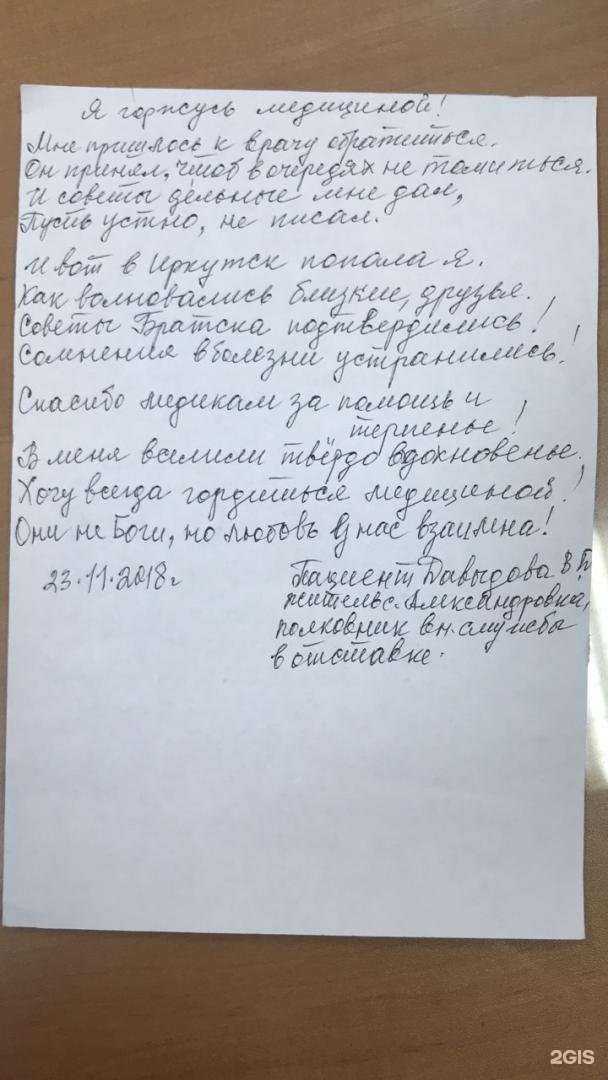 Я горжусь медициной!
Мне пришлось к врачу обратиться.
Он принял, чтоб в очередях не томиться.
И советы дельные мне дал,
Пусть устно, не писал.
И вот в Иркутск попала я.
Как волновались близкие, друзья.
Советы Братска подтвердились!
Сомнения в болезни устранились!
Спасибо медикам за помощь и
терпенье!
В меня вселили твёрдо вдохновенье.
Хочу всегда гордиться медициной!
Они не Боги, но любовь у нас взаимна!
23.11.2018г
Пациент Давыдова В Б
житель с. Александровка,
полковник вн. службы
в отставке.
2GIS